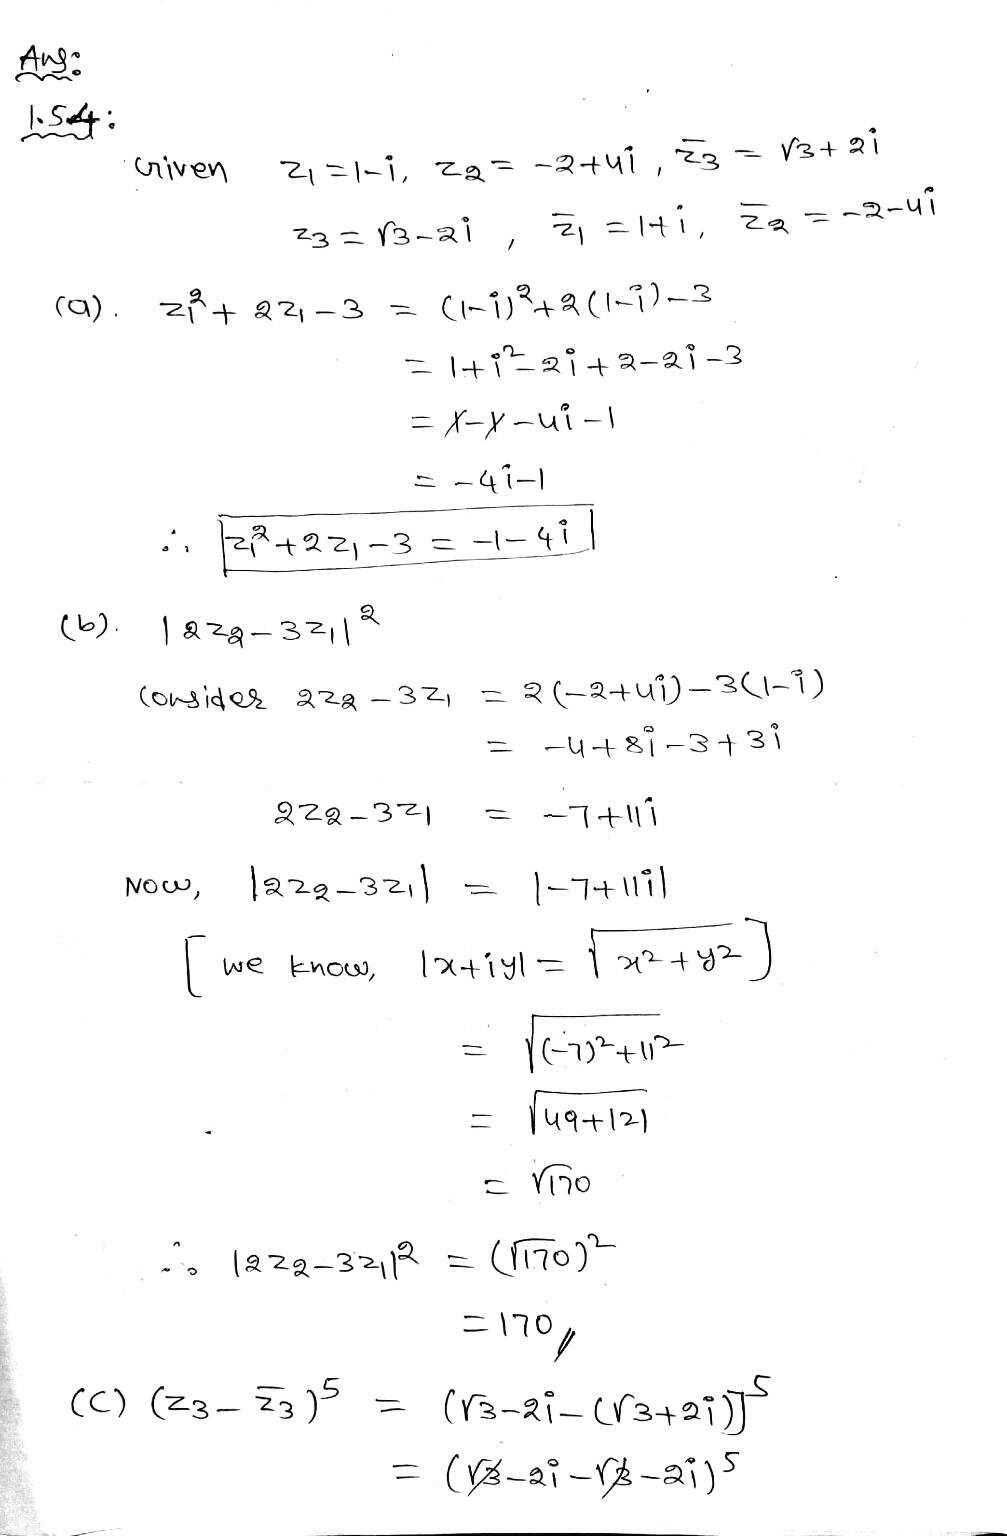 Ans:
1.54:
Given z₁=1-i, z₂= -2+4i, z̄₃ = √3+2i
z₃ = √3-2i , z̄₁ =1+i, z̄₂ = -2-4i
(a). z₁²+ 2z₁-3 = (1-i)²+2(1-i)-3
= 1+i²-2i+2-2i-3
= 1-1-4i-1
= -4i-1
∴ z₁²+2z₁-3 = -1-4i
(b). |2z₂-3z₁|²
Consider 2z₂-3z₁ = 2(-2+4i)-3(1-i)
= -4+8i-3+3i
2z₂-3z₁ = -7+11i
Now, |2z₂-3z₁| = |-7+11i|
[we know, |x+iy|= √x²+y²]
= √(-7)²+11²
= √49+121
= √170
∴ |2z₂-3z₁|² = (√170)²
=170//
(C) (z₃- z̄₃)⁵ = (√3-2i-(√3+2i)]⁵
= (√3-2i-√3-2i)⁵